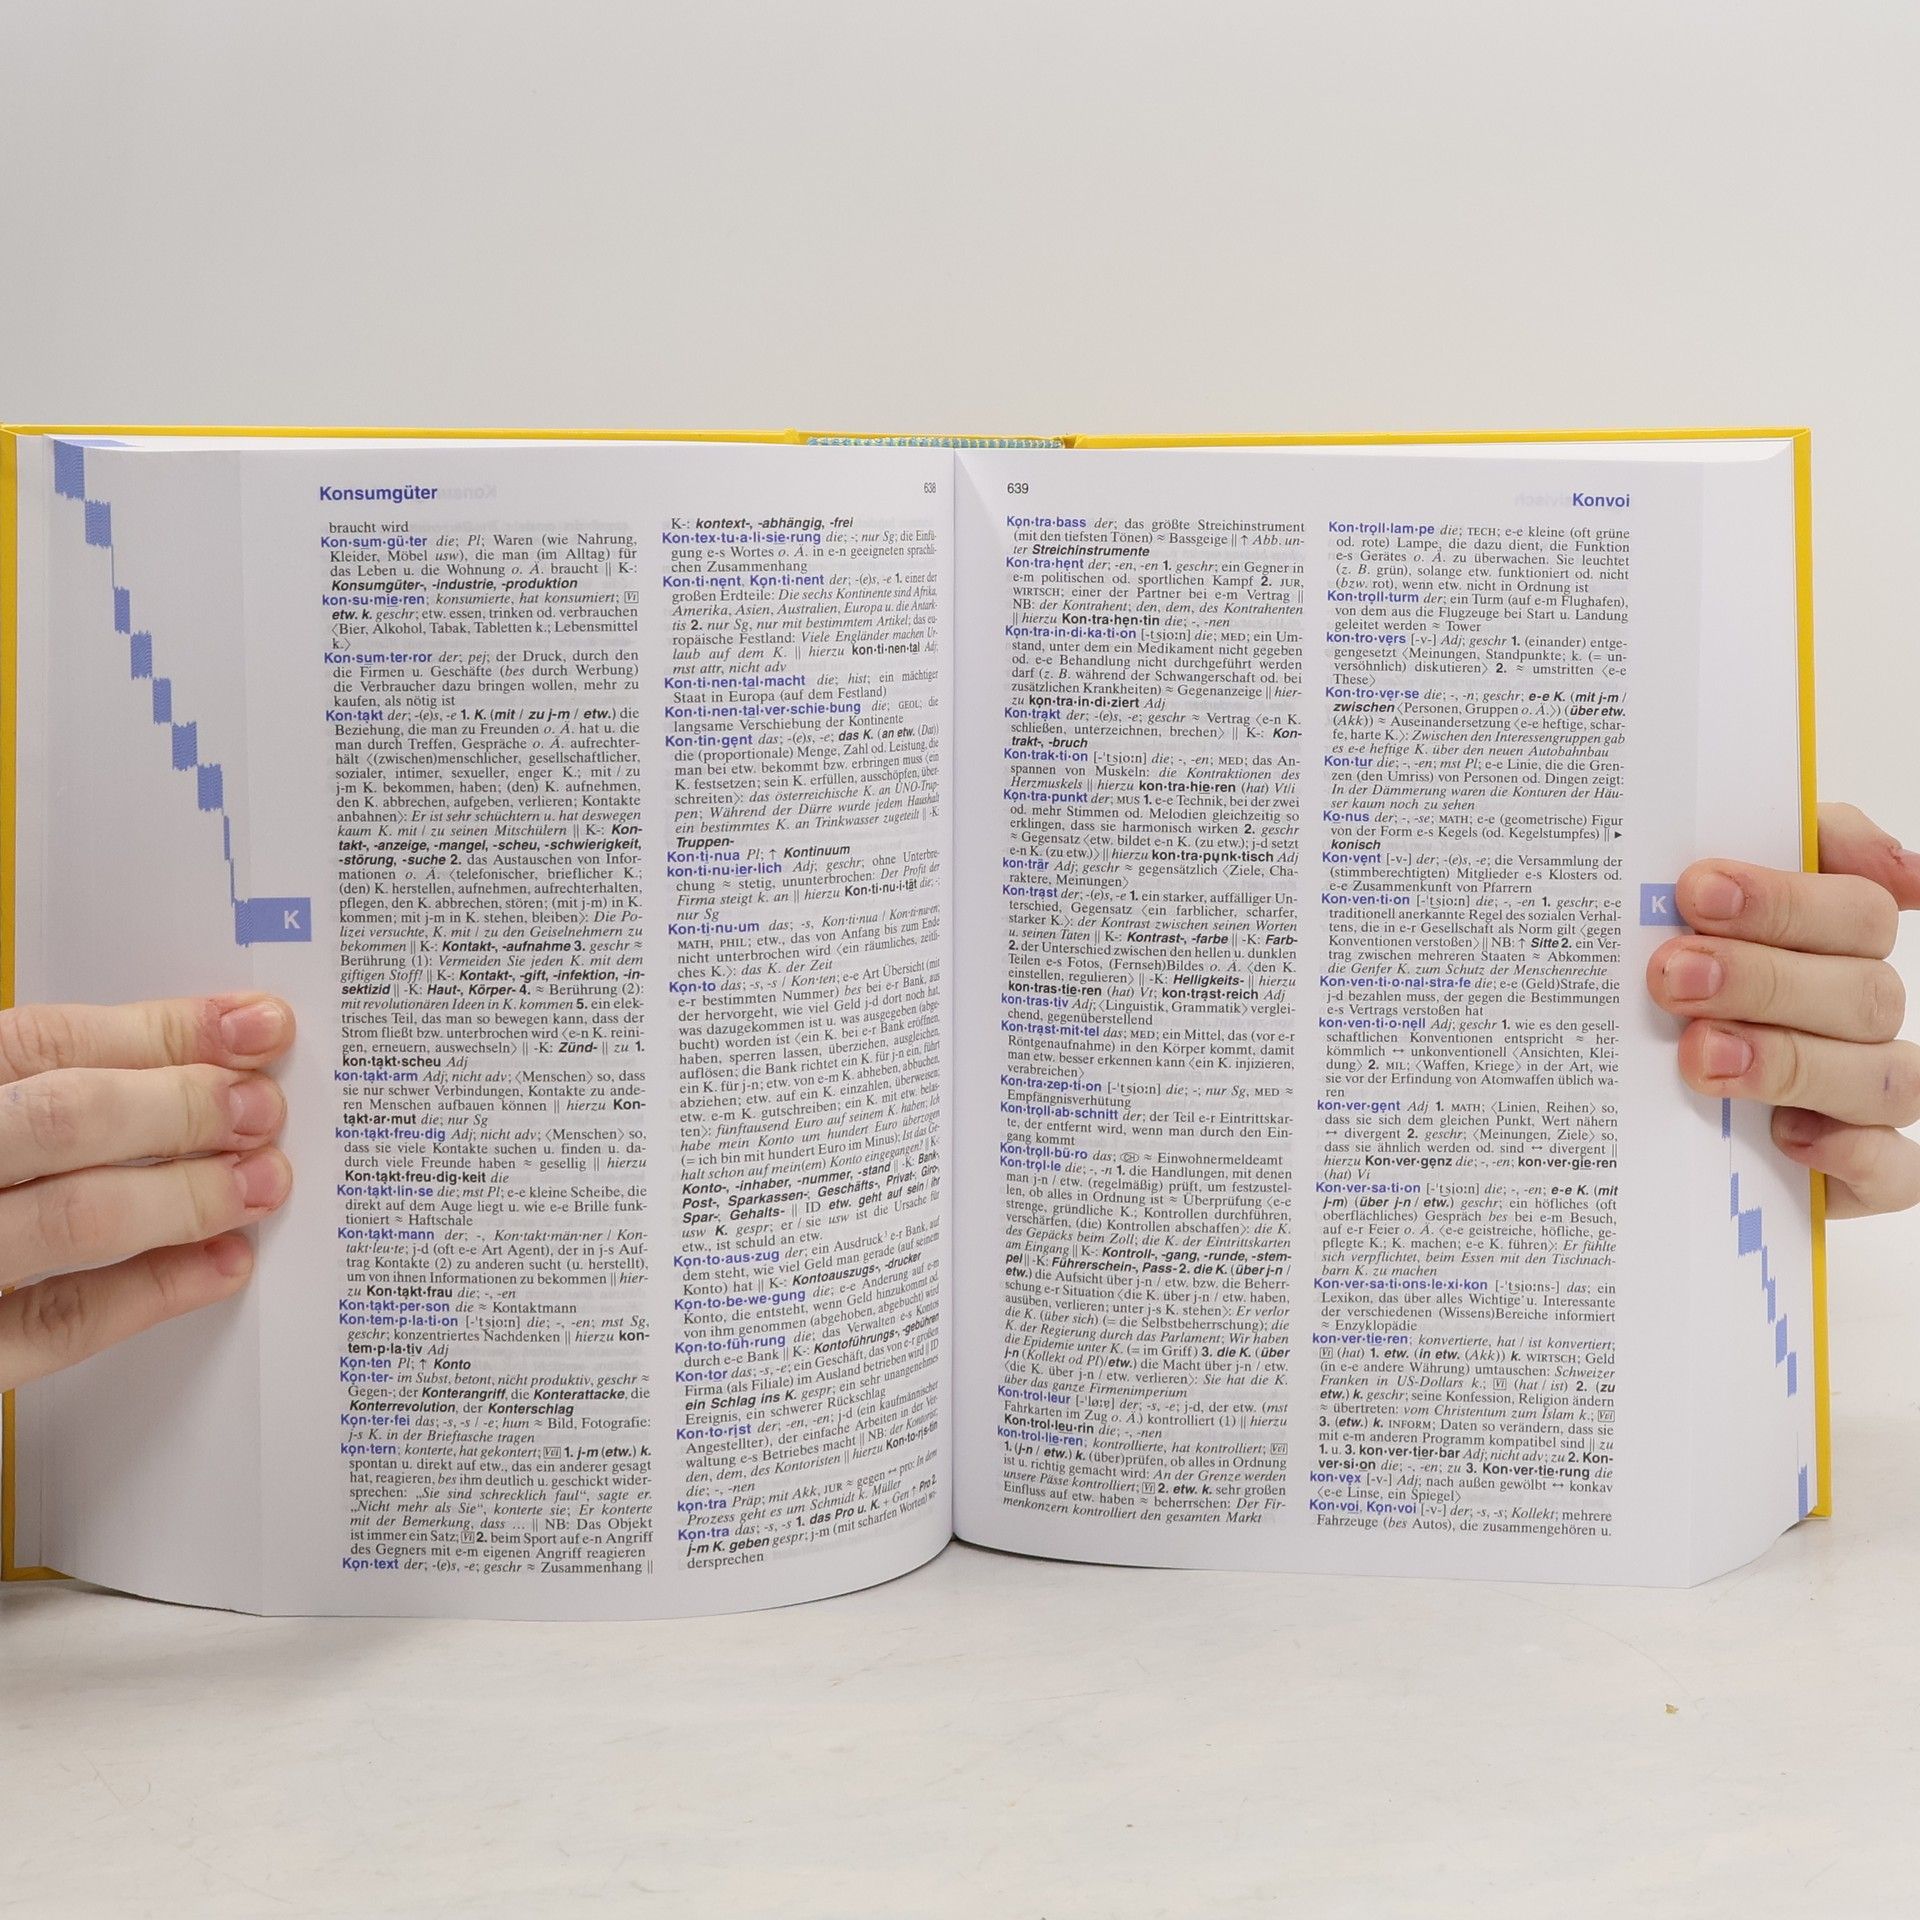 Konsumgüter
638
braucht wird
Kon·sum·gü·ter die; Pl; Waren (wie Nahrung,
Kleider, Möbel usw), die man (im Alltag) für
das Leben u. die Wohnung o. Ä. braucht || K-:
Konsumgüter-, -industrie, -produktion
kon·su·mie·ren; konsumierte, hat konsumiert; Vt
etw. k. geschr; etw. essen, trinken od. verbrauchen
⟨Bier, Alkohol, Tabak, Tabletten k.; Lebensmittel
k.⟩
Kon·sum·ter·ror der; pej; der Druck, durch den
die Firmen u. Geschäfte (bes durch Werbung)
die Verbraucher dazu bringen wollen, mehr zu
kaufen, als nötig ist
Kon·takt der; -(e)s, -e 1. K. (mit / zu j-m / etw.) die
Beziehung, die man zu Freunden o. Ä. hat u. die
man durch Treffen, Gespräche o. Ä. aufrechter-
hält ⟨(zwischen)menschlicher, gesellschaftlicher,
sozialer, intimer, sexueller, enger K.; mit / zu
j-m K. bekommen, haben; (den) K. aufnehmen,
den K. abbrechen, aufgeben, verlieren; Kontakte
anbahnen⟩: Er ist sehr schüchtern u. hat deswegen
kaum K. mit / zu seinen Mitschülern || K-: Kon-
takt-, -anzeige, -mangel, -scheu, -schwierigkeit,
-störung, -suche 2. das Austauschen von Infor-
mationen o. Ä. ⟨telefonischer, brieflicher K.;
(den) K. herstellen, aufnehmen, aufrechterhalten,
pflegen, den K. abbrechen, stören; (mit j-m) in K.
kommen; mit j-m in K. stehen, bleiben⟩: Die Po-
lizei versuchte, K. mit / zu den Geiselnehmern zu
bekommen || K-: Kontakt-, -aufnahme 3. geschr ≈
Berührung (1): Vermeiden Sie jeden K. mit dem
giftigen Stoff! || K-: Kontakt-, -gift, -infektion, -in-
sektizid || -K: Haut-, Körper- 4. ≈ Berührung (2):
mit revolutionären Ideen in K. kommen 5. ein elek-
trisches Teil, das man so bewegen kann, dass der
Strom fließt bzw. unterbrochen wird ⟨e-n K. reini-
gen, erneuern, auswechseln⟩ || -K: Zünd- || zu 1.
kon·takt·scheu Adj
kon·takt·arm Adj, nicht adv; ⟨Menschen⟩ so, dass
sie nur schwer Verbindungen, Kontakte zu ande-
ren Menschen aufbauen können || hierzu Kon-
takt·ar·mut die; nur Sg
kon·takt·freu·dig Adj; nicht adv; ⟨Menschen⟩ so,
dass sie viele Kontakte suchen u. finden u. da-
durch viele Freunde haben ≈ gesellig || hierzu
Kon·takt·freu·dig·keit die
Kon·takt·lin·se die; mst Pl; e-e kleine Scheibe, die
direkt auf dem Auge liegt u. wie e-e Brille funk-
tioniert ≈ Haftschale
Kon·takt·mann der; -, Kon·takt·män·ner / Kon-
takt·leu·te; j-d (oft e-e Art Agent), der in j-s Auf-
trag Kontakte (2) zu anderen sucht (u. herstellt),
um von ihnen Informationen zu bekommen || hier-
zu Kon·takt·frau die; -, -en
Kon·takt·per·son die ≈ Kontaktmann
Kon·tem·pla·ti·on [-'tsi̯oːn] die; -, -en; mst Sg,
geschr; konzentriertes Nachdenken || hierzu kon-
tem·pla·tiv Adj
Kon·ten Pl; ↑ Konto
Kon·ter- im Subst, betont, nicht produktiv, geschr ≈
Gegen-; der Konterangriff, die Konterattacke, die
Konterrevolution, der Konterschlag
Kon·ter·fei das; -s, -s / -e; hum ≈ Bild, Fotografie:
j-s K. in der Brieftasche tragen
kon·tern; konterte, hat gekontert; Vt/i 1. j-m (etw.) k.
spontan u. direkt auf etw., das ein anderer gesagt
hat, reagieren, bes ihm deutlich u. geschickt wider-
sprechen: „Sie sind schrecklich faul“, sagte er.
„Nicht mehr als Sie“, konterte sie; Er konterte
mit der Bemerkung, dass ... || NB: Das Objekt
ist immer ein Satz; Vi 2. beim Sport auf e-n Angriff
des Gegners mit e-m eigenen Angriff reagieren
Kon·text der; -(e)s, -e; geschr ≈ Zusammenhang ||
K-: kontext-, -abhängig, -frei
Kon·tex·tu·a·li·sie·rung die; -; nur Sg; die Einfü-
gung e-s Wortes o. Ä. in e-n geeigneten sprachli-
chen Zusammenhang
Kon·ti·nent, Kon·ti·nent der; -(e)s, -e 1. einer der
großen Erdteile: Die sechs Kontinente sind Afrika,
Amerika, Asien, Australien, Europa u. die Antark-
tis 2. nur Sg, nur mit bestimmtem Artikel; das eu-
ropäische Festland: Viele Engländer machen Ur-
laub auf dem K. || hierzu kon·ti·nen·tal Adj;
mst attr, nicht adv
Kon·ti·nen·tal·macht die; hist; ein mächtiger
Staat in Europa (auf dem Festland)
Kon·ti·nen·tal·ver·schie·bung die; GEOL; die
langsame Verschiebung der Kontinente
Kon·tin·gent das; -(e)s, -e; das K. (an etw. (Dat))
die (proportionale) Menge, Zahl od. Leistung, die
man bei etw. bekommt bzw. erbringen muss ⟨ein
K. festsetzen; sein K. erfüllen, ausschöpfen, über-
schreiten⟩: das österreichische K. an UNO-Trup-
pen; Während der Dürre wurde jedem Haushalt
ein bestimmtes K. an Trinkwasser zugeteilt || -K:
Truppen-
Kon·ti·nua Pl; ↑ Kontinuum
kon·ti·nu·ier·lich Adj; geschr; ohne Unterbre-
chung ≈ stetig, ununterbrochen: Der Profit der
Firma steigt k. an || hierzu Kon·ti·nu·i·tät die; -;
nur Sg
Kon·ti·nu·um das; -s, Kon·ti·nua / Kon·ti·nu·en;
MATH, PHIL; etw., das von Anfang bis zum Ende
nicht unterbrochen wird ⟨ein räumliches, zeitli-
ches K.⟩: das K. der Zeit
Kon·to das; -s, -s / Kon·ten; e-e Art Übersicht (mit
e-r bestimmten Nummer) bes bei e-r Bank, aus
der hervorgeht, wie viel Geld j-d dort noch hat,
was dazugekommen ist u. was ausgegeben (abge-
bucht) worden ist ⟨ein K. bei e-r Bank eröffnen,
haben, sperren lassen, überziehen, ausgleichen,
auflösen; die Bank richtet ein K. für j-n ein, führt
ein K. für j-n; etw. von e-m K. abheben, abbuchen,
abziehen; etw. auf ein K. einzahlen, überweisen;
etw. e-m K. gutschreiben; ein K. mit etw. belas-
ten⟩: fünftausend Euro auf seinem K. haben; Ich
habe mein Konto um hundert Euro überzogen
(= ich bin mit hundert Euro im Minus); Ist das Ge-
halt schon auf mein(em) Konto eingegangen? || K-:
Konto-, -inhaber, -nummer, -stand || -K: Bank-,
Post-, Sparkassen-, Geschäfts-, Privat-, Giro-,
Spar-, Gehalts- || ID etw. geht auf sein / ihr
usw K. gespr; er / sie usw ist die Ursache für
etw., ist schuld an etw.
Kon·to·aus·zug der; ein Ausdruck³ e-r Bank, auf
dem steht, wie viel Geld man gerade (auf seinem
Konto) hat || K-: Kontoauszugs-, -drucker
Kon·to·be·we·gung die; e-e Änderung auf e-m
Konto, die entsteht, wenn Geld hinzukommt od.
von ihm genommen (abgehoben, abgebucht) wird
Kon·to·füh·rung die; das Verwalten e-s Kontos
durch e-e Bank || K-: Kontoführungs-, -gebühren
Kon·tor das; -s, -e; ein Geschäft, das von e-r großen
Firma (als Filiale) im Ausland betrieben wird || ID
ein Schlag ins K. gespr; ein sehr unangenehmes
Ereignis, ein schwerer Rückschlag
Kon·to·rist der; -en, -en; j-d (ein kaufmännischer
Angestellter), der einfache Arbeiten in der Ver-
waltung e-s Betriebes macht || NB: der Kontorist;
den, dem, des Kontoristen || hierzu Kon·to·ris·tin
die; -, -nen
kon·tra Präp; mit Akk, JUR ≈ gegen ↔ pro: In dem
Prozess geht es um Schmidt k. Müller
Kon·tra das; -s, -s 1. das Pro u. K. + Gen ↑ Pro 2.
j-m K. geben gespr; j-m (mit scharfen Worten) wi-
dersprechen
K
639
Konvoi
Kon·tra·bass der; das größte Streichinstrument
(mit den tiefsten Tönen) ≈ Bassgeige || ↑ Abb. un-
ter Streichinstrumente
Kon·tra·hent der; -en, -en 1. geschr; ein Gegner in
e-m politischen od. sportlichen Kampf 2. JUR,
WIRTSCH; einer der Partner bei e-m Vertrag ||
NB: der Kontrahent; den, dem, des Kontrahenten
|| hierzu Kon·tra·hen·tin die; -, -nen
Kon·tra·in·di·ka·ti·on [-tsi̯oːn] die; MED; ein Um-
stand, unter dem ein Medikament nicht gegeben
od. e-e Behandlung nicht durchgeführt werden
darf (z. B. während der Schwangerschaft od. bei
zusätzlichen Krankheiten) ≈ Gegenanzeige || hier-
zu kon·tra·in·di·ziert Adj
Kon·trakt der; -(e)s, -e; geschr ≈ Vertrag ⟨e-n K.
schließen, unterzeichnen, brechen⟩ || K-: Kon-
trakt-, -bruch
Kon·trak·ti·on [-'tsi̯oːn] die; -, -en; MED; das An-
spannen von Muskeln: die Kontraktionen des
Herzmuskels || hierzu kon·tra·hie·ren (hat) Vt/i
Kon·tra·punkt der; MUS 1. e-e Technik, bei der zwei
od. mehr Stimmen od. Melodien gleichzeitig so
erklingen, dass sie harmonisch wirken 2. geschr
≈ Gegensatz ⟨etw. bildet e-n K. (zu etw.); j-d setzt
e-n K. (zu etw.)⟩ || hierzu kon·tra·punk·tisch Adj
kon·trär Adj; geschr ≈ gegensätzlich ⟨Ziele, Cha-
raktere, Meinungen⟩
Kon·trast der; -(e)s, -e 1. ein starker, auffälliger Un-
terschied, Gegensatz ⟨ein farblicher, scharfer,
starker K.⟩: der Kontrast zwischen seinen Worten
u. seinen Taten || K-: Kontrast-, -farbe || -K: Farb-
2. der Unterschied zwischen den hellen u. dunklen
Teilen e-s Fotos, (Fernseh)Bildes o. Ä. ⟨den K.
einstellen, regulieren⟩ || -K: Helligkeits- || hierzu
kon·tras·tie·ren (hat) Vt; kon·trast·reich Adj
kon·tras·tiv Adj; ⟨Linguistik, Grammatik⟩ verglei-
chend, gegenüberstellend
Kon·trast·mit·tel das; MED; ein Mittel, das (vor e-r
Röntgenaufnahme) in den Körper kommt, damit
man etw. besser erkennen kann ⟨ein K. injizieren,
verabreichen⟩
Kon·tra·zep·ti·on [-'tsi̯oːn] die; -; nur Sg, MED ≈
Empfängnisverhütung
Kon·troll·ab·schnitt der; der Teil e-r Eintrittskar-
te, der entfernt wird, wenn man durch den Ein-
gang kommt
Kon·troll·bü·ro das; CH ≈ Einwohnermeldeamt
Kon·trol·le die; -, -n 1. die Handlungen, mit denen
man j-n / etw. (regelmäßig) prüft, um festzustel-
len, ob alles in Ordnung ist ≈ Überprüfung ⟨e-e
strenge, gründliche K.; Kontrollen durchführen,
verschärfen, (die) Kontrollen abschaffen⟩: die K.
des Gepäcks beim Zoll; die K. der Eintrittskarten
am Eingang || K-: Kontroll-, -gang, -runde, -stem-
pel || -K: Führerschein-, Pass- 2. die K. (über j-n /
etw.) die Aufsicht über j-n / etw. bzw. die Beherr-
schung e-r Situation ⟨die K. über j-n / etw. haben,
ausüben, verlieren; unter j-s K. stehen⟩: Er verlor
die K. (über sich) (= die Selbstbeherrschung); die
K. der Regierung durch das Parlament; Wir haben
die Epidemie unter K. (= im Griff) 3. die K. (über
j-n (Kollekt od Pl)/etw.) die Macht über j-n / etw.
⟨die K. über j-n / etw. verlieren⟩: Sie hat die K.
über das ganze Firmenimperium
Kon·trol·leur [-'løːɐ̯] der; -s, -e; j-d, der etw. (mst
Fahrkarten im Zug o. Ä.) kontrolliert (1) || hierzu
Kon·trol·leu·rin die; -, -nen
kon·trol·lie·ren; kontrollierte, hat kontrolliert; Vt/i
1. (j-n / etw.) k. (über)prüfen, ob alles in Ordnung
ist u. richtig gemacht wird: An der Grenze werden
unsere Pässe kontrolliert; Vt 2. etw. k. sehr großen
Einfluss auf etw. haben ≈ beherrschen: Der Fir-
menkonzern kontrolliert den gesamten Markt
Kon·troll·lam·pe die; TECH; e-e kleine (oft grüne
od. rote) Lampe, die dazu dient, die Funktion
e-s Gerätes o. Ä. zu überwachen. Sie leuchtet
(z. B. grün), solange etw. funktioniert od. nicht
(bzw. rot), wenn etw. nicht in Ordnung ist
Kon·troll·turm der; ein Turm (auf e-m Flughafen),
von dem aus die Flugzeuge bei Start u. Landung
geleitet werden ≈ Tower
kon·tro·vers [-v-] Adj; geschr 1. (einander) entge-
gengesetzt ⟨Meinungen, Standpunkte; k. (= un-
versöhnlich) diskutieren⟩ 2. ≈ umstritten ⟨e-e
These⟩
Kon·tro·ver·se die; -, -n; geschr; e-e K. (mit j-m /
zwischen ⟨Personen, Gruppen o. Ä.⟩) (über etw.
(Akk)) ≈ Auseinandersetzung ⟨e-e heftige, schar-
fe, harte K.⟩: Zwischen den Interessengruppen gab
es e-e heftige K. über den neuen Autobahnbau
Kon·tur die; -, -en; mst Pl; e-e Linie, die die Gren-
zen (den Umriss) von Personen od. Dingen zeigt:
In der Dämmerung waren die Konturen der Häu-
ser kaum noch zu sehen
Ko·nus der; -, -se; MATH; e-e (geometrische) Figur
von der Form e-s Kegels (od. Kegelstumpfes) || ▸
konisch
Kon·vent [-v-] der; -(e)s, -e; die Versammlung der
(stimmberechtigten) Mitglieder e-s Klosters od.
e-e Zusammenkunft von Pfarrern
Kon·ven·ti·on [-'tsi̯oːn] die; -, -en 1. geschr; e-e
traditionell anerkannte Regel des sozialen Verhal-
tens, die in e-r Gesellschaft als Norm gilt ⟨gegen
Konventionen verstoßen⟩ || NB: ↑ Sitte 2. ein Ver-
trag zwischen mehreren Staaten ≈ Abkommen:
die Genfer K. zum Schutz der Menschenrechte
Kon·ven·ti·o·nal·stra·fe die; e-e (Geld)Strafe, die
j-d bezahlen muss, der gegen die Bestimmungen
e-s Vertrags verstoßen hat
kon·ven·ti·o·nell Adj; geschr 1. wie es den gesell-
schaftlichen Konventionen entspricht ≈ her-
kömmlich ↔ unkonventionell ⟨Ansichten, Klei-
dung⟩ 2. MIL; ⟨Waffen, Kriege⟩ in der Art, wie
sie vor der Erfindung von Atomwaffen üblich wa-
ren
kon·ver·gent Adj 1. MATH; ⟨Linien, Reihen⟩ so,
dass sie sich dem gleichen Punkt, Wert nähern
↔ divergent 2. geschr; ⟨Meinungen, Ziele⟩ so,
dass sie ähnlich werden od. sind ↔ divergent ||
hierzu Kon·ver·genz die; -, -en; kon·ver·gie·ren
(hat) Vi
Kon·ver·sa·ti·on [-'tsi̯oːn] die; -, -en; e-e K. (mit
j-m) (über j-n / etw.) geschr; ein höfliches (oft
oberflächliches) Gespräch bes bei e-m Besuch,
auf e-r Feier o. Ä. ⟨e-e geistreiche, höfliche, ge-
pflegte K.; K. machen; e-e K. führen⟩: Er fühlte
sich verpflichtet, beim Essen mit den Tischnach-
barn K. zu machen
Kon·ver·sa·ti·ons·le·xi·kon [-'tsi̯oːns-] das; ein
Lexikon, das über alles Wichtige u. Interessante
der verschiedenen (Wissens)Bereiche informiert
≈ Enzyklopädie
kon·ver·tie·ren; konvertierte, hat / ist konvertiert;
Vt (hat) 1. etw. (in etw. (Akk)) k. WIRTSCH; Geld
(in e-e andere Währung) umtauschen: Schweizer
Franken in US-Dollars k.; Vi (hat / ist) 2. (zu
etw.) k. geschr; seine Konfession, Religion ändern
≈ übertreten: vom Christentum zum Islam k.; Vt/i
3. (etw.) k. INFORM; Daten so verändern, dass sie
mit e-m anderen Programm kompatibel sind || zu
1. u. 3. kon·ver·tier·bar Adj; nicht adv; zu 2. Kon-
ver·si·on die; -, -en; zu 3. Kon·ver·tie·rung die
kon·vex [-v-] Adj; nach außen gewölbt ↔ konkav
⟨e-e Linse, ein Spiegel⟩
Kon·voi, Kon·voi [-v-] der; -s, -s; Kollekt; mehrere
Fahrzeuge (bes Autos), die zusammengehören u.
K